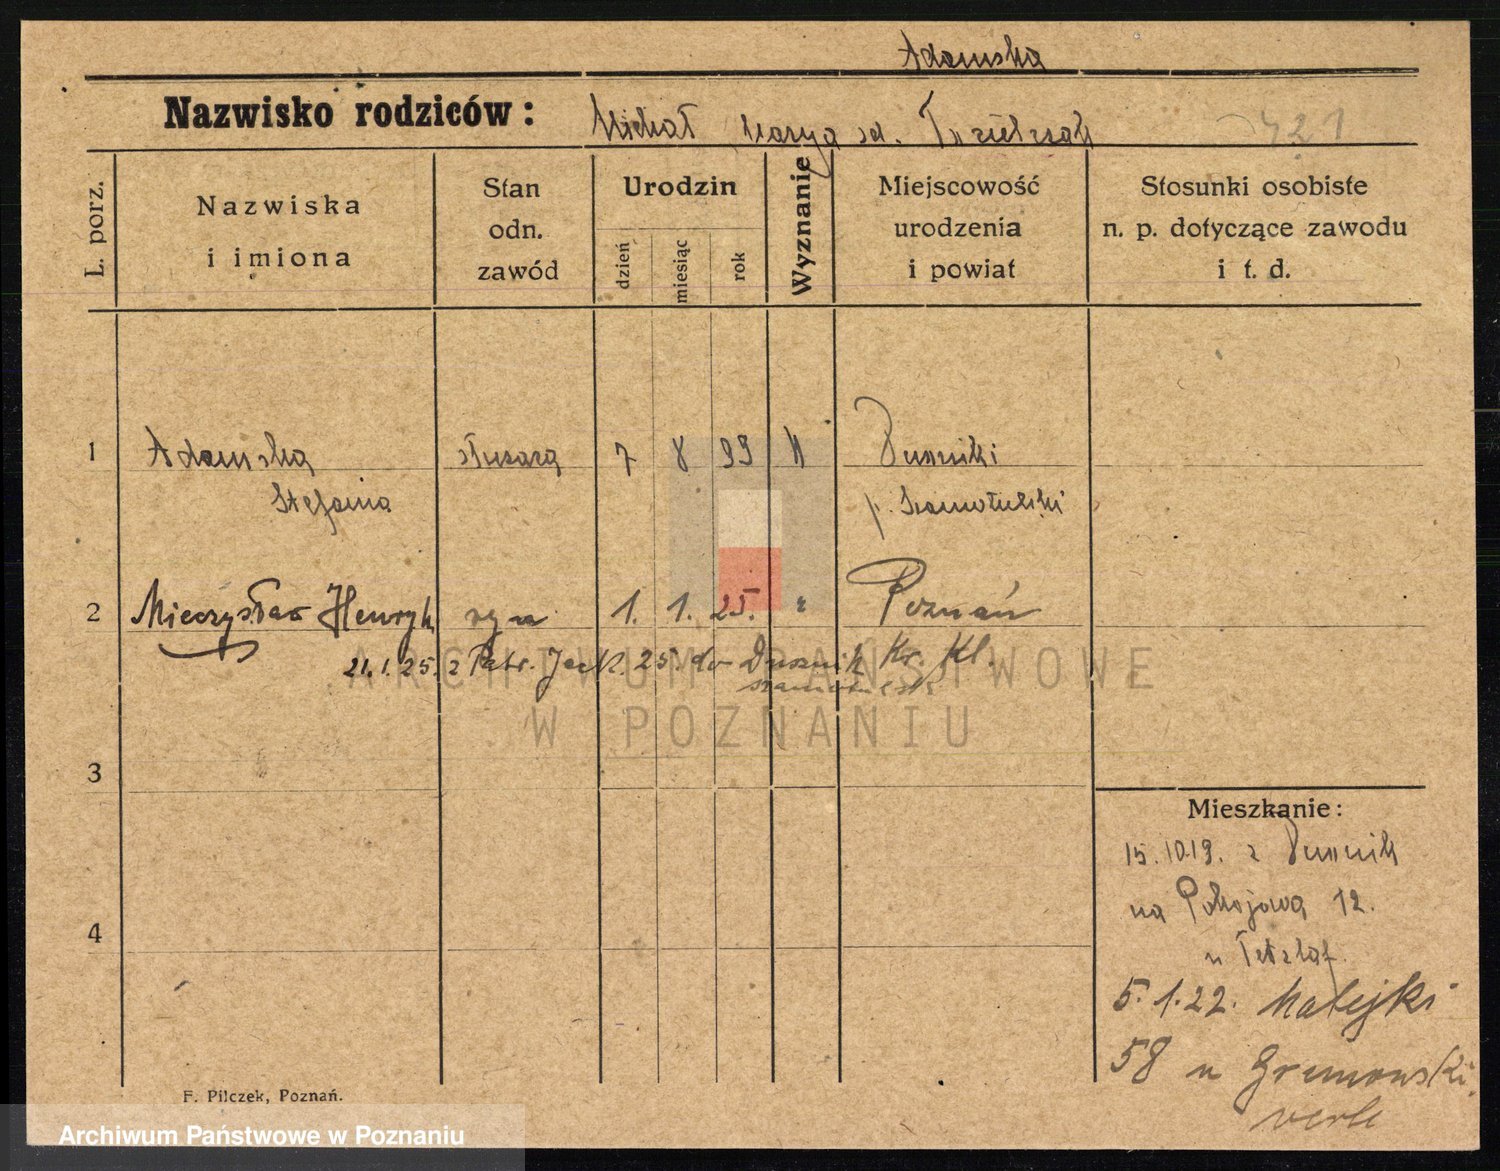 Adamska
Nazwisko rodziców: Michał Marya
421
L. porz.
Nazwiska i imiona
Stan odn. zawód
Urodzin
dzień
miesiąc
rok
Wyznanie
Miejscowość urodzenia i powiat
Stosunki osobiste n. p. dotyczące zawodu i t. d.
1 Adamska służąca 7 8 99 k Duszniki
Stefania p. Szamotulski
2 Mieczysław Henryk syn 1. 1. 25. " Poznań
21.1.25. z Patr. Jack. 25. do Dusznik Kr. Kl.
szamotulsk
3
Mieszkanie:
15.10.19. z Dusznik
na Pokojową 12.
4
u Tetzlaf.
5.1.22. Matejki
58 u
F. Pilczek, Poznań.
ARCHIWUM PAŃSTWOWE
W POZNANIU
Archiwum Państwowe w Poznaniu